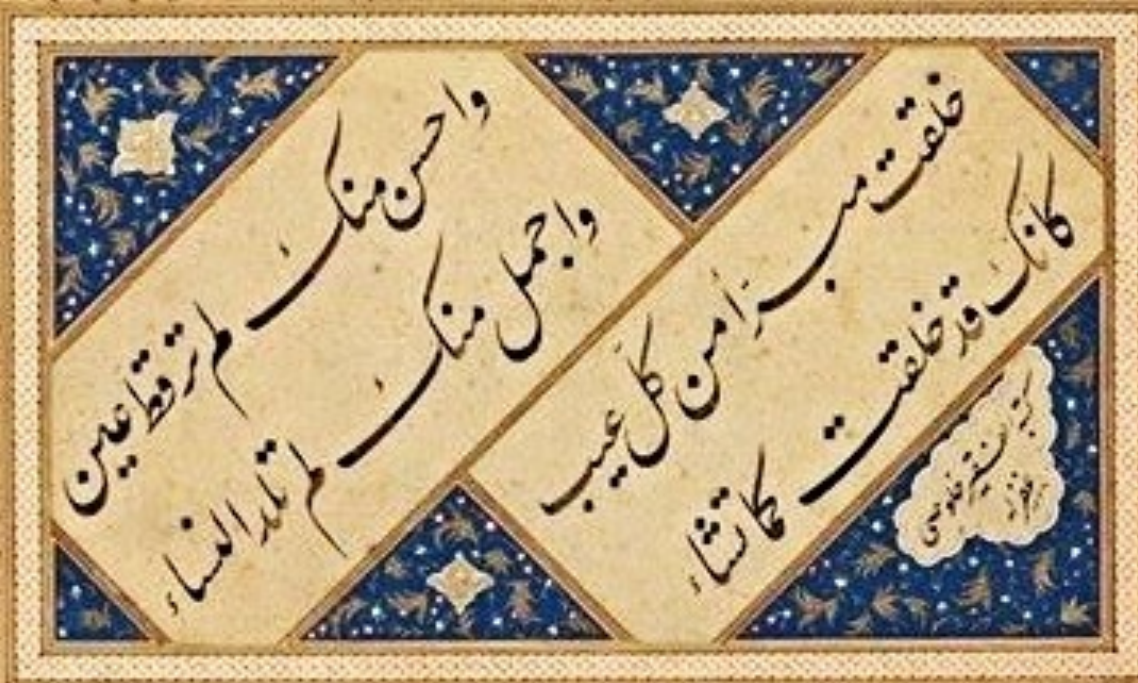 واحسن منك لم تر قط عين
واجمل منك لم تلد النساء
خلقت مبرَأ من كل عيب
كانكَ قد خلقت كما تشاء
كتبه الفقير خلوصى